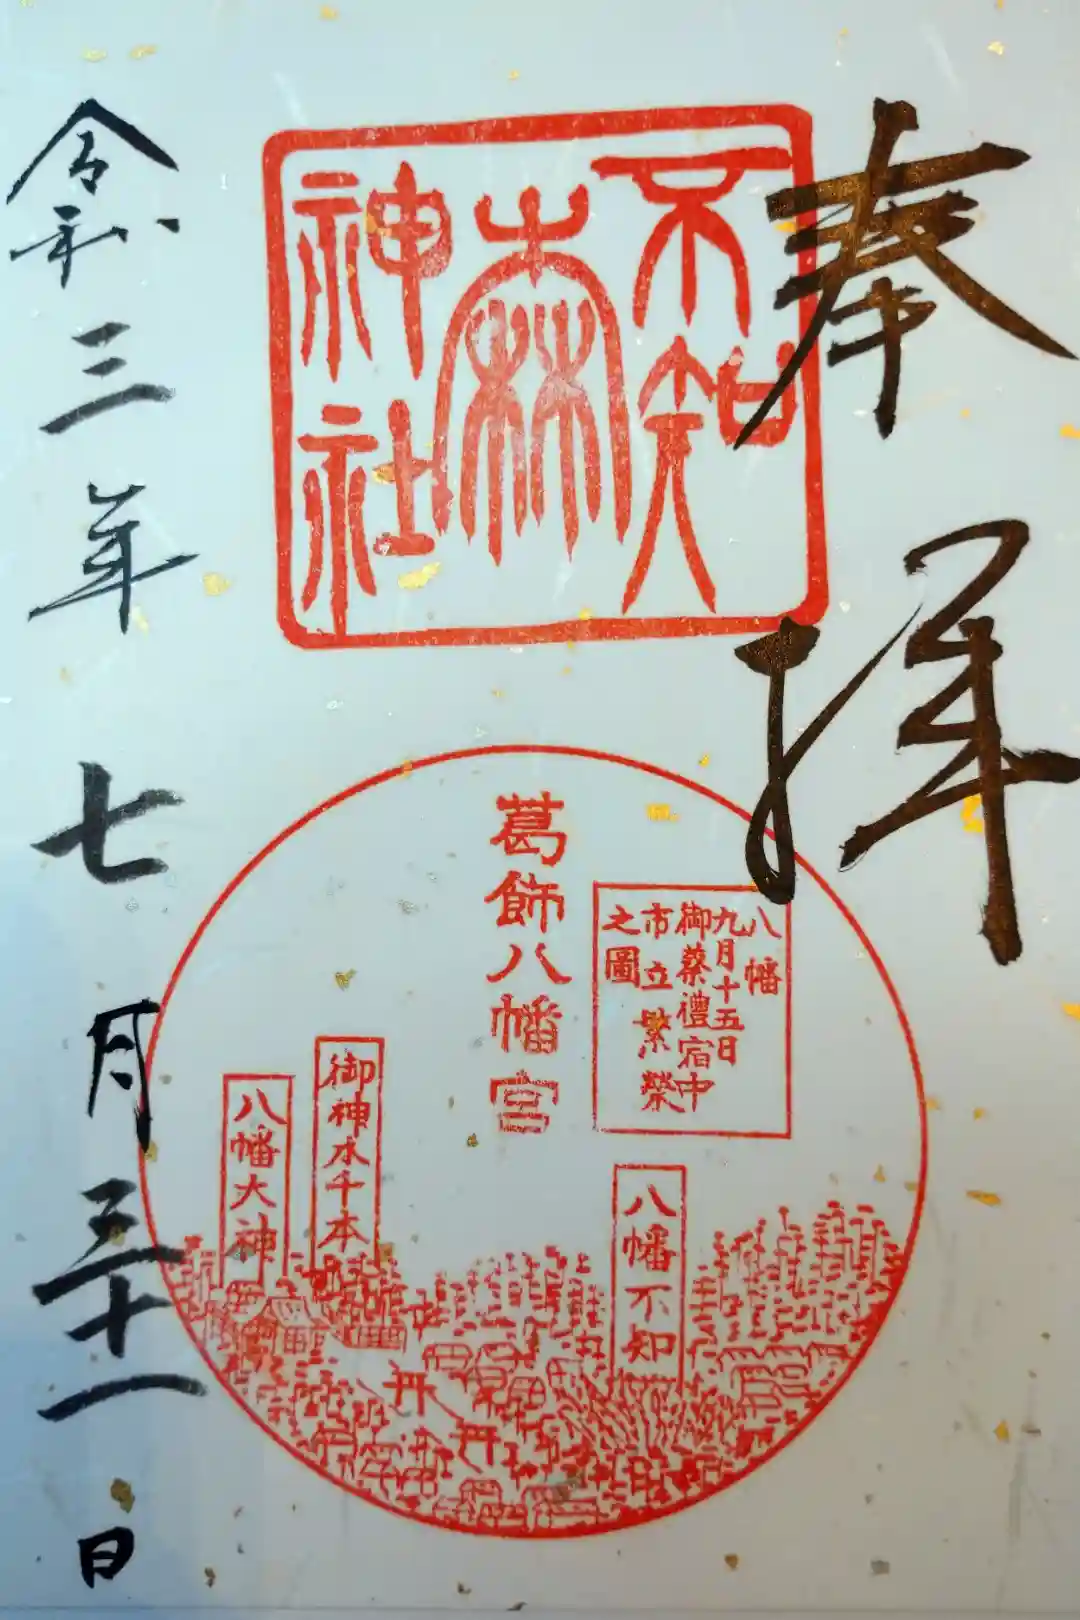 奉拝
不知
森
神社
葛飾八幡宮
八幡
九月十五日
御蔡禮宿中
市立繁榮
之圖
八幡不知
御神木千本
八幡大神
令和三年七月三十一日